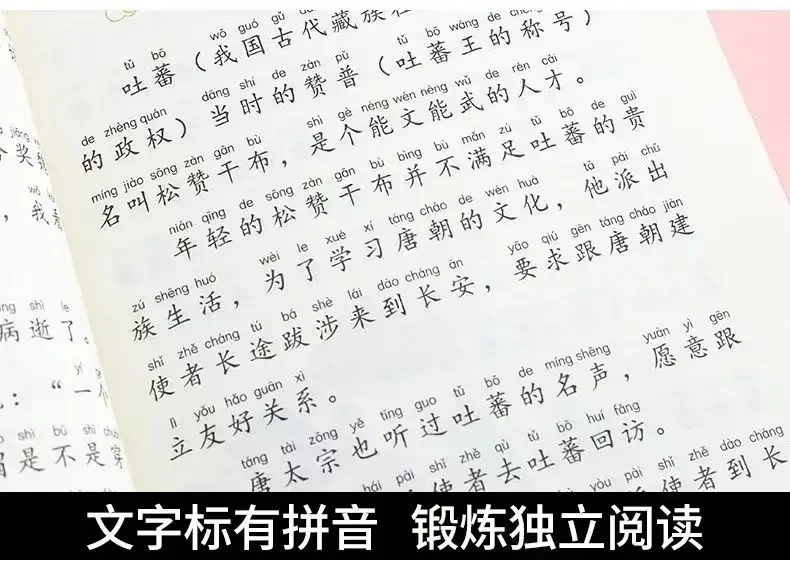 tǔ bō wǒ guó gǔ dài zàng zú
吐蕃（我国古代藏族
de zhèng quán dāng shí de zàn pǔ tǔ bō wáng de chēng hào
的政权）当时的赞普（吐蕃王的称号）
míng jiào sōng zàn gàn bù shì gè néng wén néng wǔ de rén cái
名叫松赞干布，是个能文能武的人才。
nián qīng de sōng zàn gàn bù bìng bù mǎn zú tǔ bō de guì
年轻的松赞干布并不满足吐蕃的贵
zú shēng huó wèi le xué xí táng cháo de wén huà tā pài chū
族生活，为了学习唐朝的文化，他派出
shǐ zhě cháng tú bá shè lái dào cháng ān yāo qiú gēn táng cháo jiàn
使者长途跋涉来到长安，要求跟唐朝建
lì yǒu hǎo guān xì
立友好关系。
táng tài zōng yě tīng guo tǔ bō de míng shēng yuàn yì gēn
唐太宗也听过吐蕃的名声，愿意跟
hái pài shǐ zhě qù tǔ bō huí fǎng
使者去吐蕃回访。
pài shǐ zhě dào cháng
使者到长
奖到
，我看
shì le
病逝了。
：“一个
shì bú shì
是不是穿
文字标有拼音 锻炼独立阅读